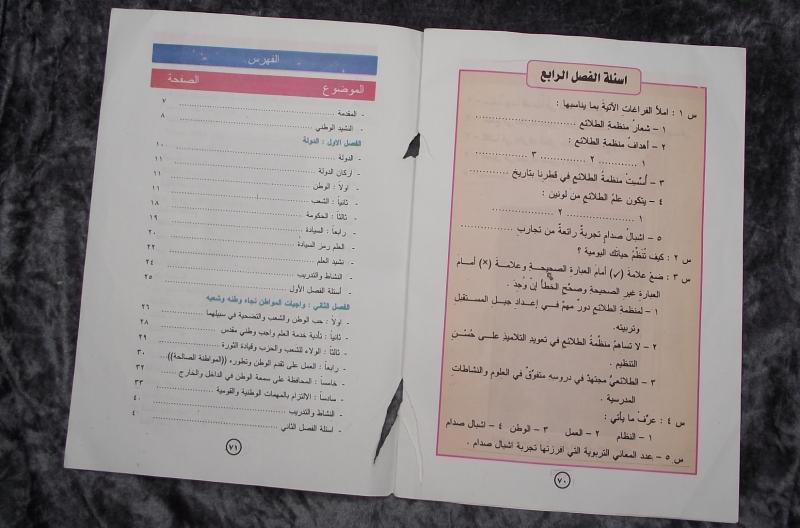 اسئلة الفصل الرابع
س ١ : املأ الفراغات الآتية بما يناسبها :
١ – شعارُ منظمة الطلائع ....................
٢ – أهدافُ منظمة الطلائع :
١ ............ ٢ ............ ٣ ............
٣ – أُسِّسَتْ منظمةُ الطلائع في قطرنا بتاريخ ............
٤ – يتكون علمُ الطلائع من لونين :
١ .................... ٢ ....................
٥ – اشبالُ صدام تجربةٌ رائعةٌ من تجارب ............
س ٢ : كيف تُنَظِّمُ حياتك اليومية ؟
س ٣ : ضعْ علامة (✓) أمام العبارة الصحيحة وعلامة (×) أمام
العبارة غير الصحيحة وصحّح الخطأ إن وُجِدَ .
١ – لمنظمة الطلائع دورٌ مهمٌ في إعداد جيل المستقبل
وتربيته .
٢ – لا تساهمُ منظّمةُ الطلائع في تعويد التلاميذ على حُسْن
التنظيم .
٣ – الطلائعيُّ مجتهدٌ في دروسه متفوّقٌ في العلوم والنشاطات
المدرسية .
س ٤ : عرِّفْ ما يأتي :
١ – النظام ٢ – العمل ٣ – الوطن ٤ – اشبال صدام
س ٥ – عدد المعاني التربوية التي أفرزتها تجربة اشبال صدام .
٧٠
الفهرس
الموضوع الصفحة
- المقدمة ٧
- النشيد الوطني ٨
الفصل الاول : الدولة
- الدولة ١٠
- أركان الدولة ١١
- اولاً : الوطن ١١
- ثانياً : الشعب ١١
- ثالثاً : الحكومة ١٨
- رابعاً : السيادة ١٩
- العلم رمز السيادة ٢٠
- نشيد العلم ٢٢
- النشاط والتدريب ٢٤
- أسئلة الفصل الأول ٢٥
الفصل الثاني : واجبات المواطن تجاه وطنه وشعبه
- اولاً : حب الوطن والشعب والتضحية في سبيلهما ٢٦
- ثانياً : تأدية خدمة العلم واجب وطني مقدس ٢٨
- ثالثاً : الولاء للشعب والحزب وقيادة الثورة ٢٩
- رابعاً : العمل على تقدم الوطن وتطوره، ((المواطنة الصالحة)) ٣٠
- خامساً : المحافظة على سمعة الوطن في الداخل والخارج ٣٢
- سادساً : الالتزام بالمهمات الوطنية والقومية ٣٣
- النشاط والتدريب ٤٠
- اسئلة الفصل الثاني
٧١